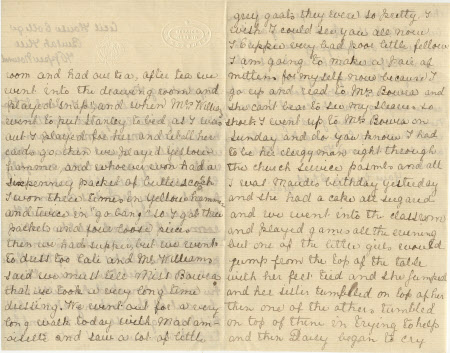 room and had our tea, after tea we
went into the drawing room and
played snap, and when Mrs Willis
went to put Stanley to bed as I was
out I played for her and let all her
cards go then we played yellow
and whoever won had a
sixpenny packet of butterscotch
I won three times in yellow
and twice in "go bang" so I got three
packets and four loose pieces
then we had supper, but we went
to dust too late and Mr Williams
said we must tell Miss Bowra
that we took a very long time
dressing. We went out for a very
long walk today with Madam-
oiselle and saw a lot of little
grey goats they were so pretty. I
wish I could see you all now
I suppose very bad poor little fellow
I am going to make a pair of
mittens for myself now because I
go up and read to Mrs Bowra and
she cant bear to see my sleeves so
short I went up to Mrs Bowra on
Sunday and do you know I had
to be her clergyman right through
the church service psalms and all
I was Maudies birthday yesterday
and she had a cake all sugared
and we went into the classroom
and played games all the evening
but one of the little girls would
jump from the top of the table
with her feet tied and she jumped
and her sister tumbled on top of her
then one of the others tumbled
on top of them in trying to help
and then Daisy began to cry